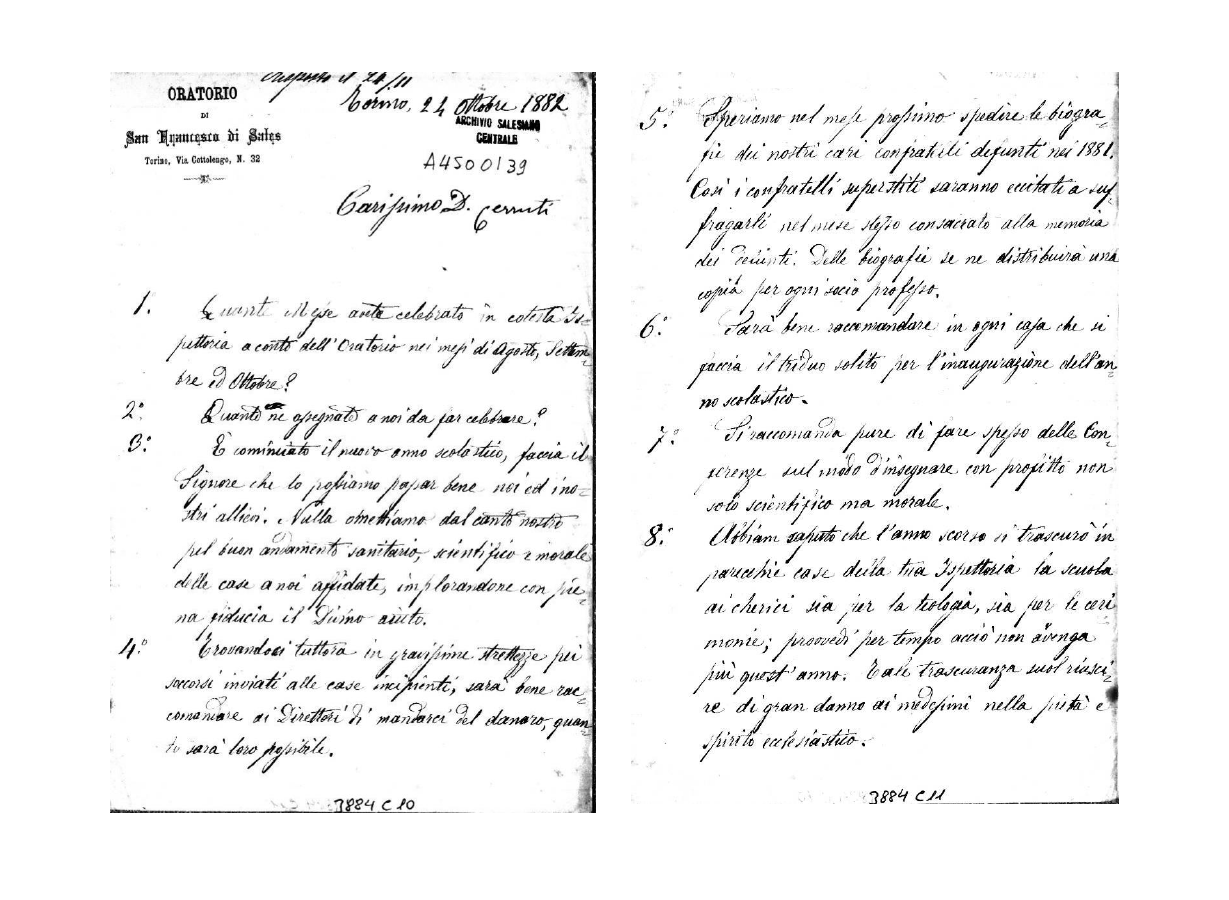 risposto il 24/11
ORATORIO
DI
San Francesco di Sales
Torino, Via Cottolengo, N. 32
Torino, 24 Ottobre 1882
ARCHIVIO SALESIANO
CENTRALE
A4500139
Carissimo D. Cerruti
1. Quante Messe avete celebrato in cotesta Is-
pettoria a conto dell'Oratorio nei mesi di Agosto, Settem-
bre ed Ottobre?
2° Quante ne assegnate a noi da far celebrare?
3° È cominciato il nuovo anno scolastico, faccia il
Signore che lo possiamo passar bene noi ed i no-
stri allievi. Nulla omettiamo dal canto nostro
pel buon andamento sanitario, scientifico e morale
delle case a noi affidate, implorandone con pie-
na fiducia il Divino aiuto.
4° Trovandoci tuttora in gravissime strettezze pei
soccorsi inviati alle case incipienti, sarà bene rac-
comandare ai Direttori di mandarci del danaro, quan-
to sarà loro possibile.
3884 C 10
5° Speriamo nel mese prossimo spedire le biogra-
fie dei nostri cari confratelli defunti nel 1881.
Così i confratelli superstiti saranno eccitati a suf-
fragarli nel mese stesso consacrato alla memoria
dei defunti. Delle biografie se ne distribuirà una
copia per ogni socio professo.
6° Sarà bene raccomandare in ogni casa che si
faccia il triduo solito per l'inaugurazione dell'an-
no scolastico.
7° Si raccomanda pure di fare spesso delle Con-
ferenze sul modo d'insegnare con profitto non
solo scientifico ma morale.
8° Abbiam saputo che l'anno scorso si trascurò in
parecchie case della tua Ispettoria la scuola
ai chierici sia per la teologia, sia per le ceri
monie; provvedi per tempo acciò non avvenga
più quest'anno. Tale trascuranza suol riusci-
re di gran danno ai medesimi nella pietà e
spirito ecclesiastico.
3884 C 11